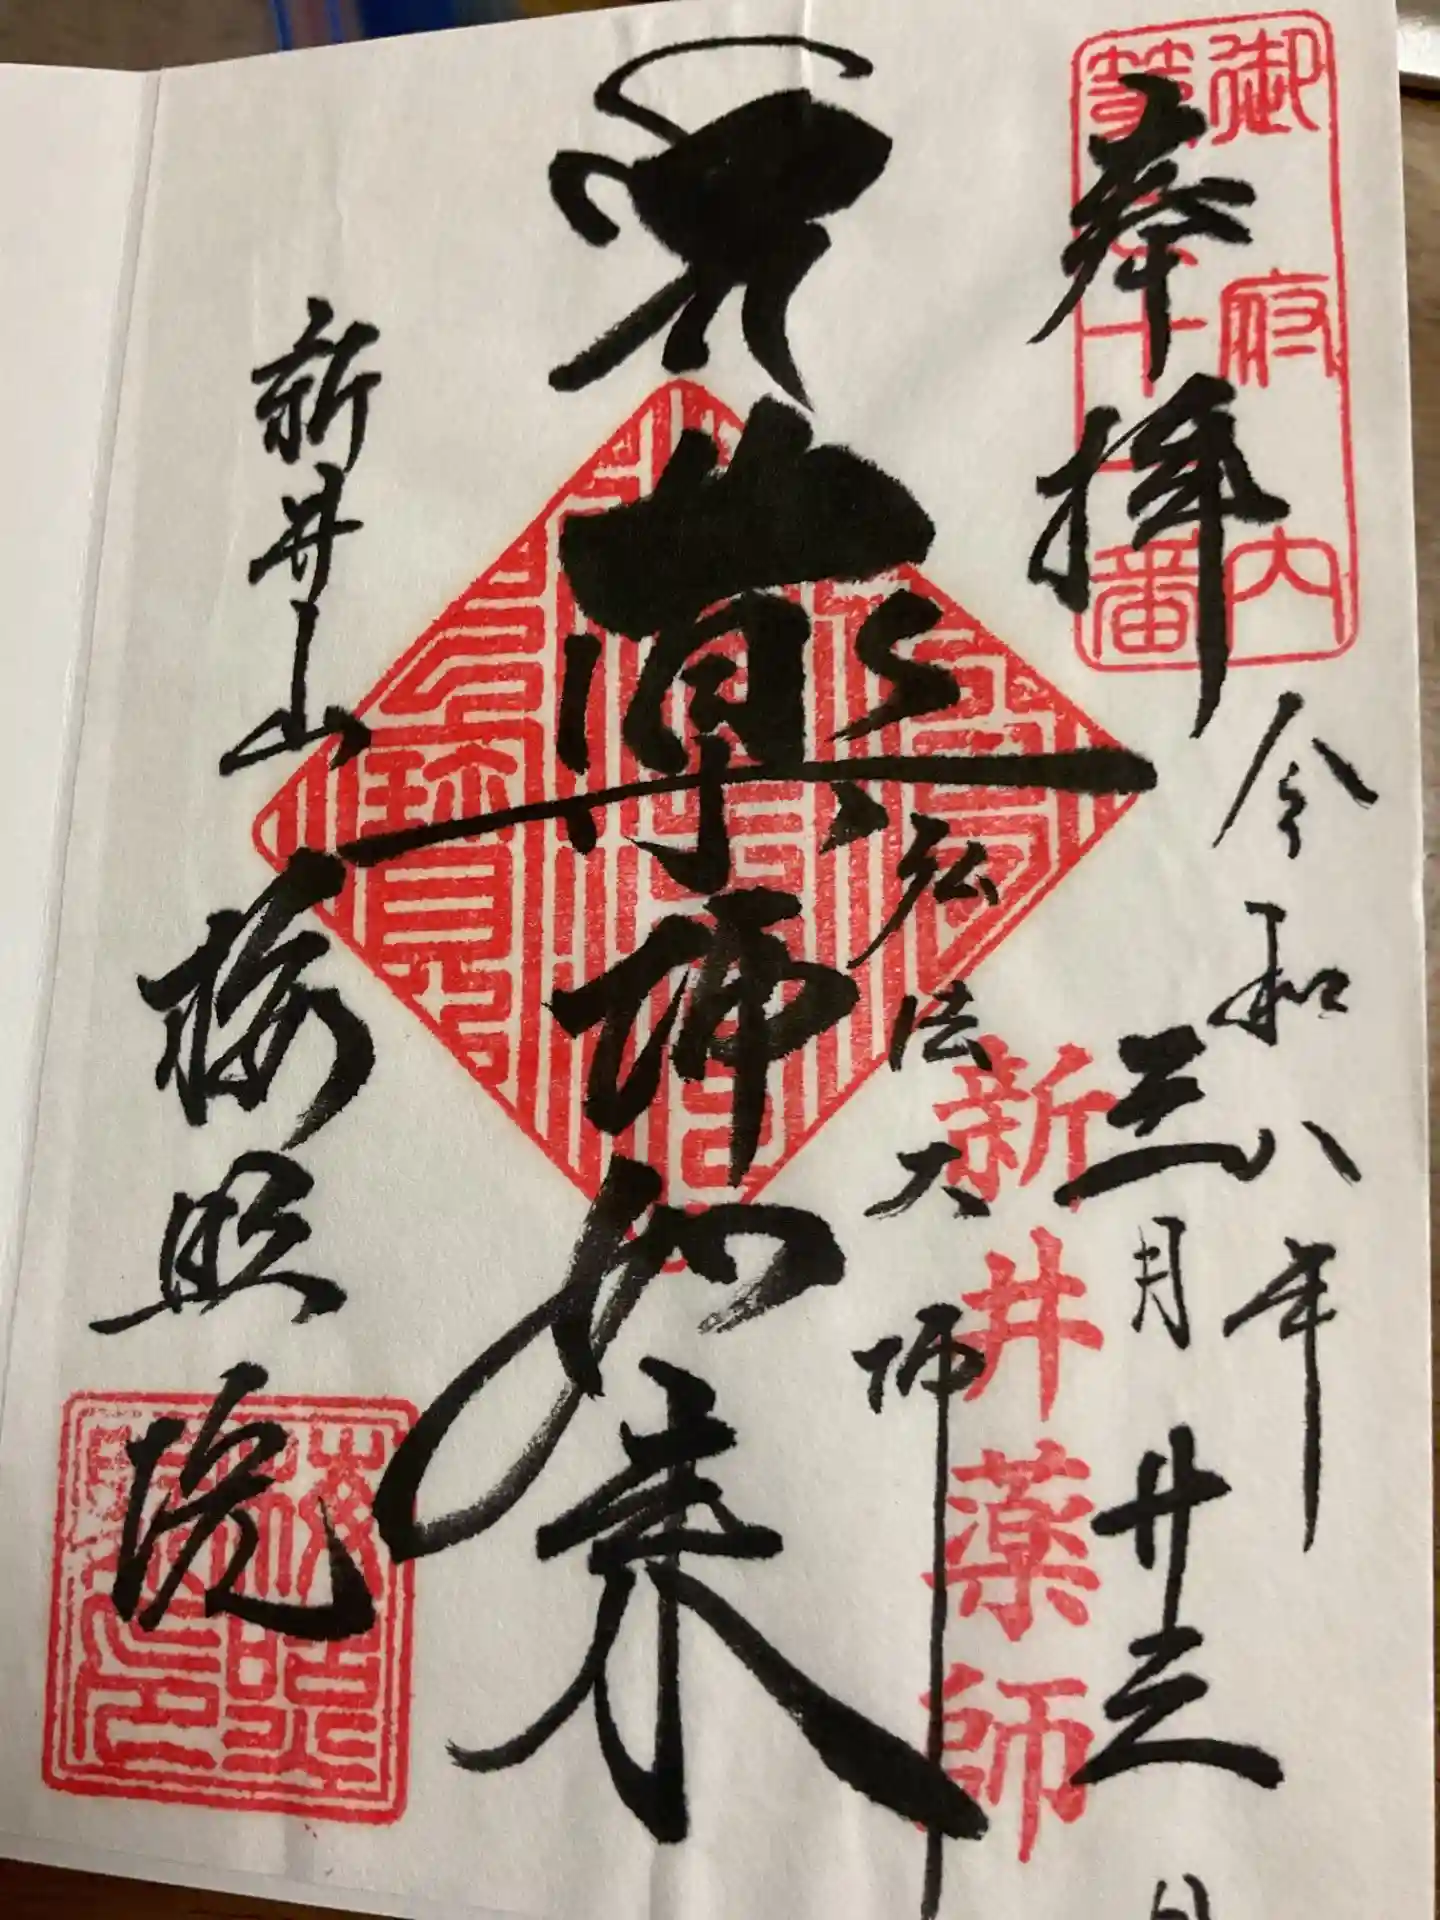 御府内
第七十一番
奉拝
令和八年
三月廿三日
新井薬師
弘法大師
薬師如来
新井山
梅照院